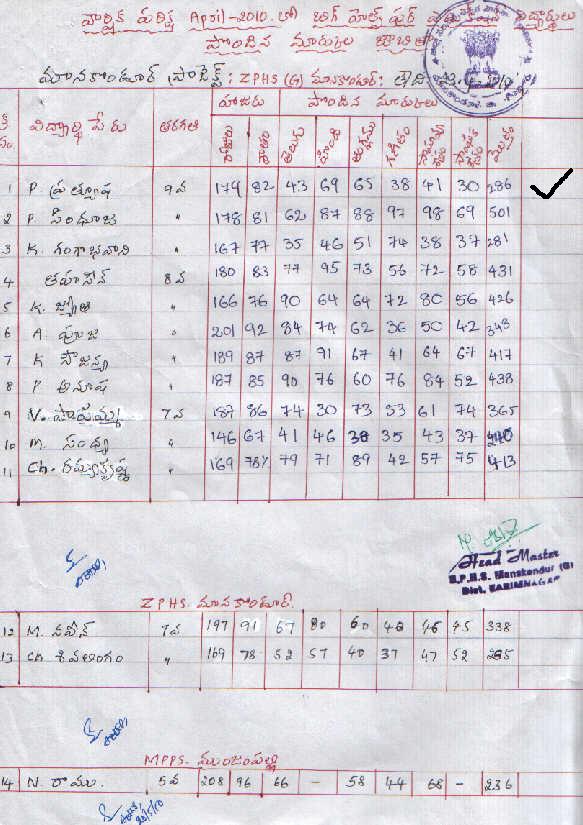 వార్షిక పరీక్ష April-2010. లో బిగ్ హెల్ప్ ఫర్ విద్యార్థులు
పొందిన మార్కుల జాబితా
మానకొండూర్ ప్రాజెక్ట్: ZPHS (G) మానకొండూర్:
హాజరు పొందిన మార్కులు
విద్యార్థి పేరు తరగతి హాజరు శాతం తెలుగు హిందీ ఇంగ్లీషు గణితం మొత్తం
1 P. ప్రత్యూష 9వ 174 82 43 69 65 38 41 30 286
2 P. సింధూజ " 178 81 62 87 88 97 98 69 501
3 K. గంగాభవాని " 167 77 35 46 51 74 38 37 281
4 తహసీన్ 8వ 180 83 77 95 73 56 72 58 431
5 K. జ్యోతి " 166 76 90 64 64 72 80 56 426
6 A. పూజ " 201 92 84 74 62 36 50 42 348
7 K సౌజన్య " 189 87 87 91 67 41 64 67 417
8 P అనూష " 187 85 90 76 60 76 84 52 438
9 N. పోషమ్మ 7వ 187 86 74 30 73 53 61 74 365
10 M. సంధ్య " 146 67 41 46 38 35 43 37 240
11 Ch. రమ్యకృష్ణ " 169 78% 79 71 89 42 57 75 413
Head Master
Z.P.H.S. Manakondur (G)
Dist. KARIMNAGAR
ZPHS. మానకొండూర్.
12 M. నవీన్ 7వ 197 91 67 80 60 46 45 338
13 Ch. శివలింగం " 169 78 52 57 40 37 47 52 285
MPPS. ముంజంపల్లి
14 N. రాము. 5వ 208 96 66 - 58 44 68 - 236